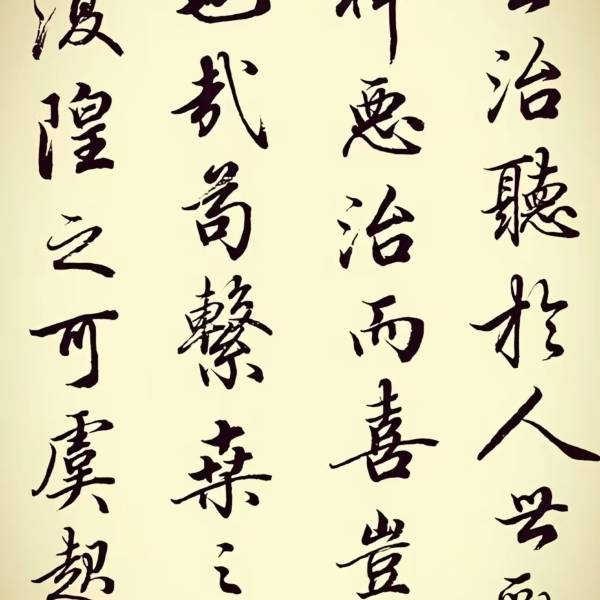 治聽於人世
惡治而喜豈
也哉苟繫桒之
復隍之可虞